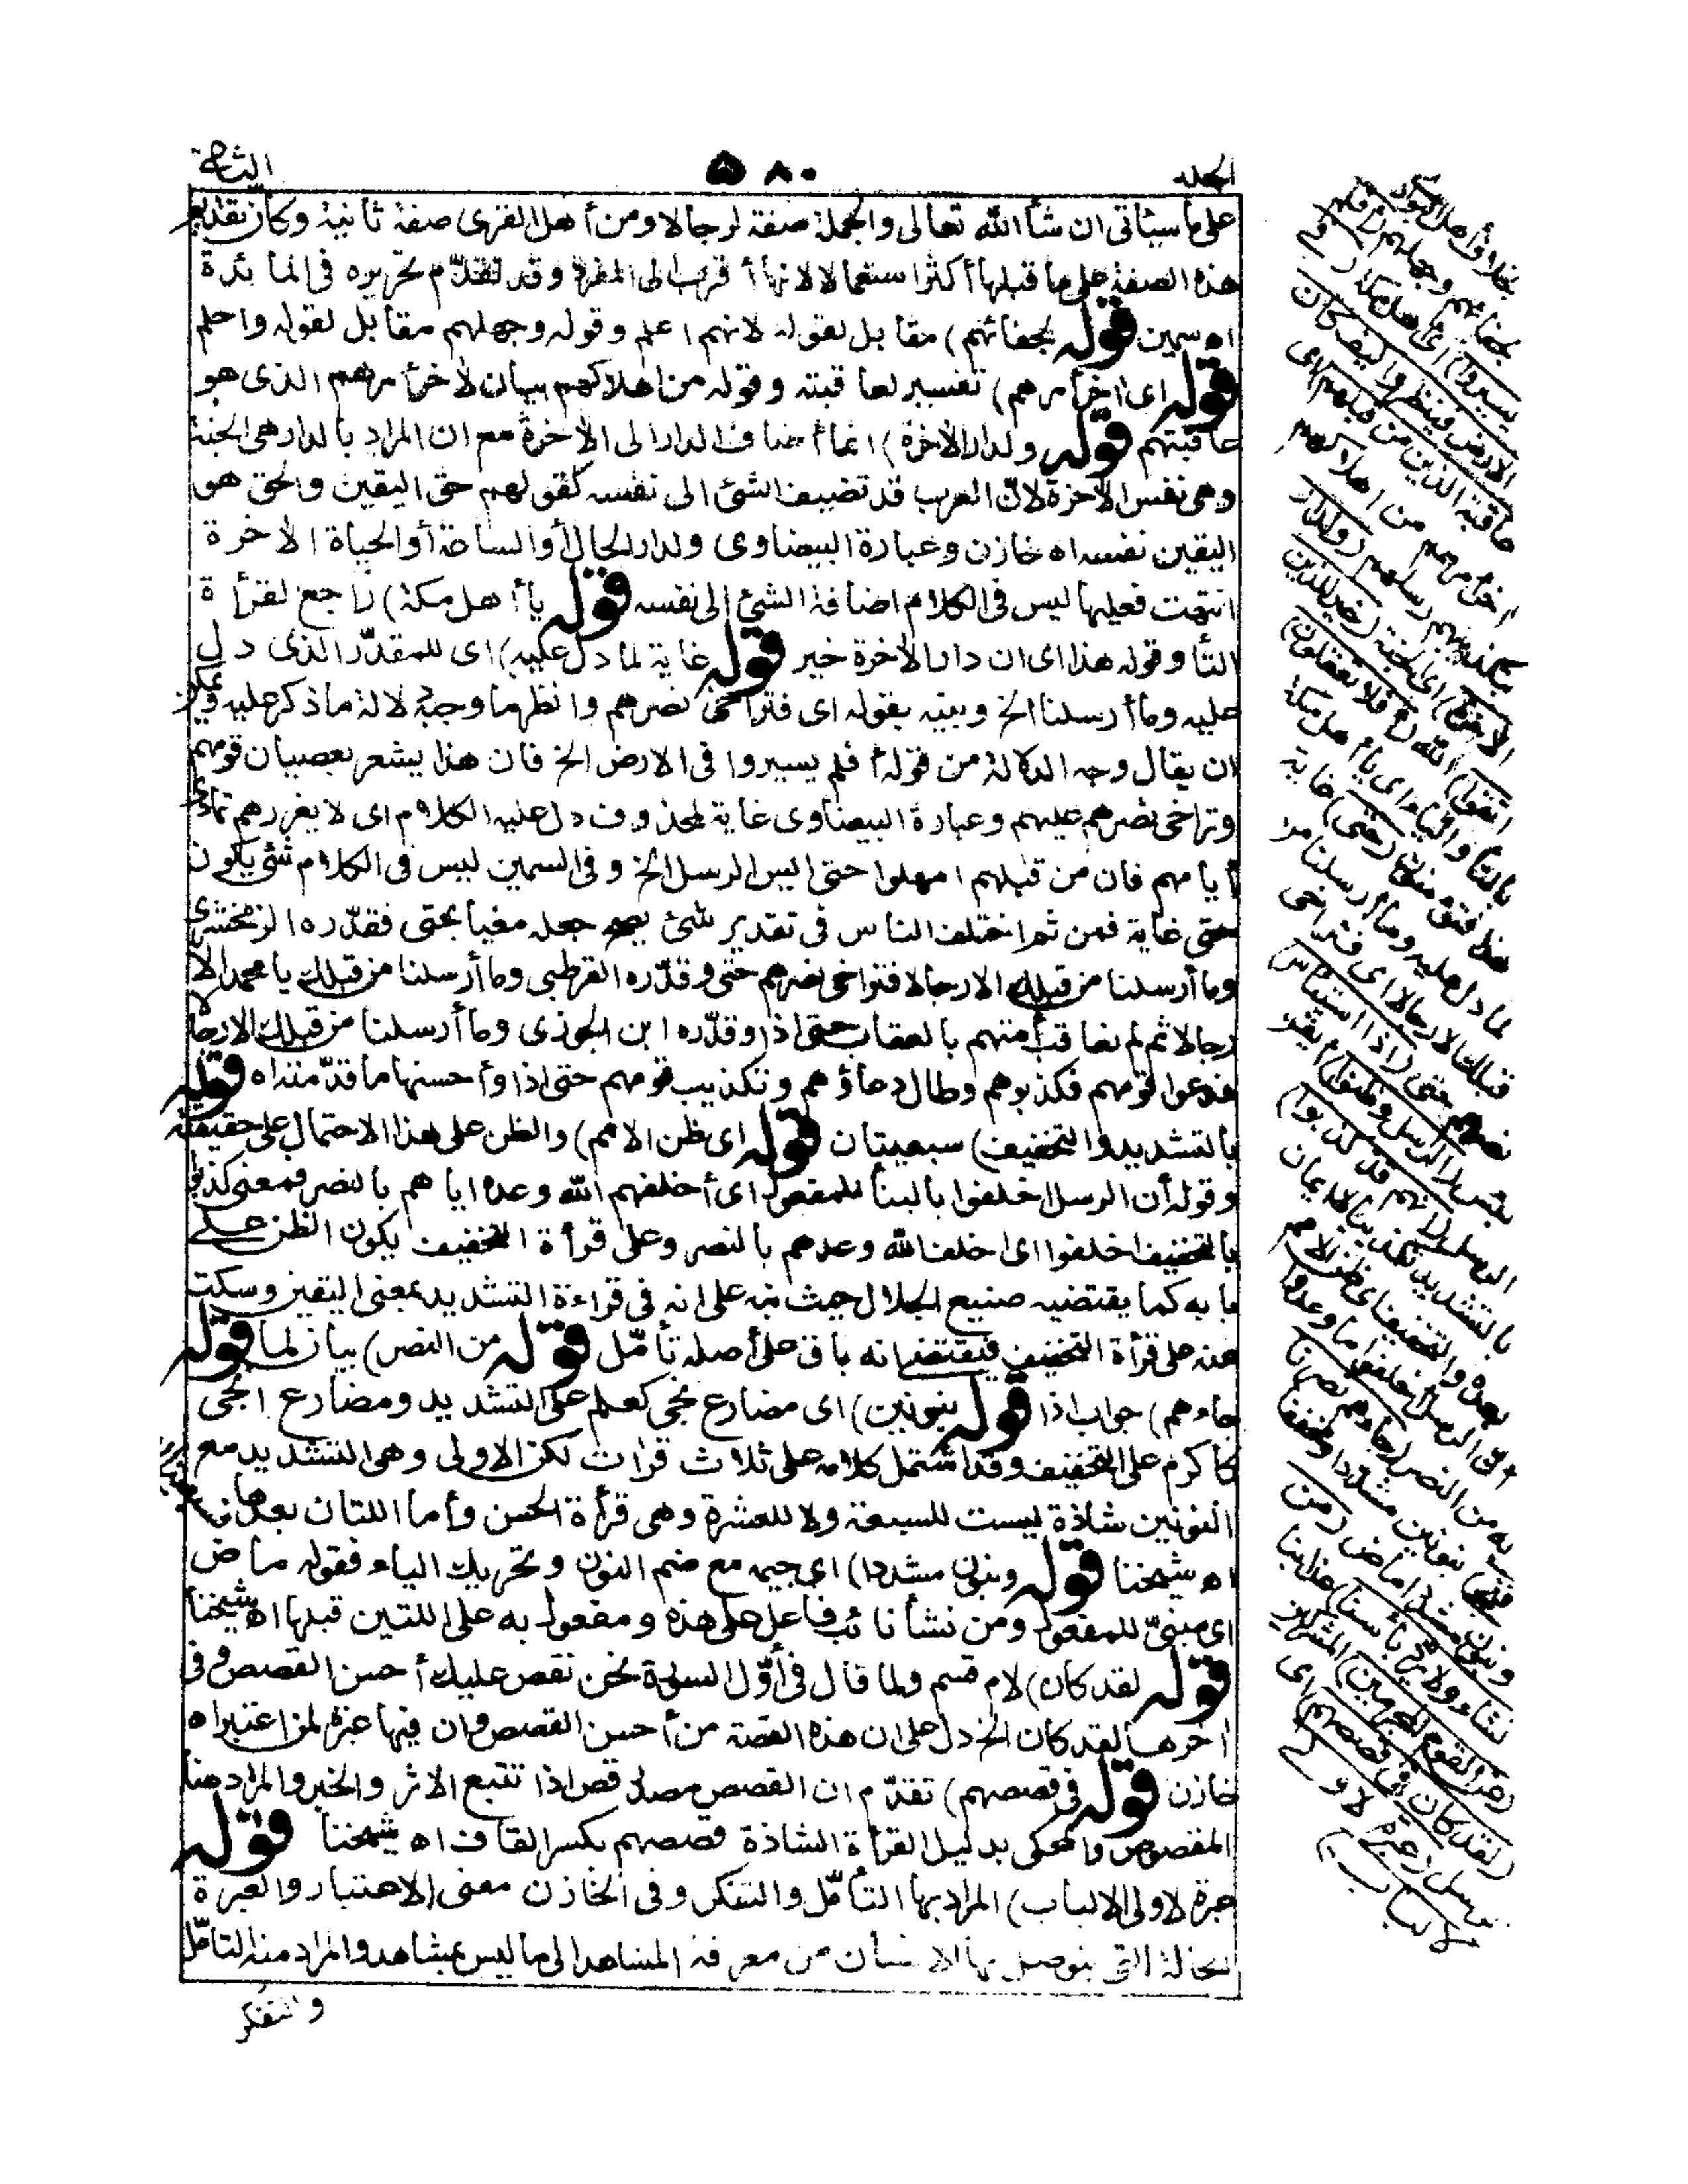 الجلد ٥٨٠ الثانى
على ما سيئاتى ان شأ الله تعالى والجملة صفة لرجالا ومن أهل القرى صفة ثانية وكان تقديم
هذه الصفة على ما قبلها أكثر استعمالا لانها أقرب الى المفرد وقد تقدّم تحريره فى المائدة
اه سمين قوله بجفائهم) مقابل لقوله لانهم اعلم وقوله وجهلهم مقابل لقوله واحلم
قوله اى اخر أمرهم) تفسير لعاقبته وقوله من اهلاكهم بيان لأخر أمرهم الذى هو
عاقبتهم قوله ولدار الأخرة) انما أضاف الدار الى الأخرة مع ان المراد بالدار هى الجنة
وهى نفس الأخرة لانّ العرب قد تضيف الشئ الى نفسه كقولهم حق اليقين والحق هو
اليقين نفسه اه خازن وعبارة البيضاوى ولدار الحال أو الساعة أو الحياة الأخرة
انتهت فعليها ليس فى الكلام اضافة الشئ الى نفسه قوله يا أهل مكة) راجع لقرأة
التأ وقوله هذا اى ان دار الأخرة خير قوله غاية لما دل عليه) اى للمقدّر الذى دل
عليه وما أرسلنا الخ وبينه بقوله اى فتراخى نصرهم وانظر ما وجه دلالة ما ذكر عليه ويمكن
ان يقال وجه الدلالة من قوله أفلم يسيروا فى الارض الخ فان هذا يشعر بعصيان قومهم
وتراخى نصرهم عليهم وعبارة البيضاوى غاية لمحذوف دل عليه الكلام اى لا يغررهم تمادى
أيامهم فان من قبلهم امهلوا حتى ايس الرسل الخ وفى السمين ليس فى الكلام شئ يكون
حتى غاية فمن ثم اختلف الناس فى تقدير شئ يصح جعله مغيا بحتى فقدّره الزمخشرى
وما أرسلنا من قبلك الا رجالا فتراخى نصرهم حتى وقدّره القرطبى وما أرسلنا من قبلك يا محمد الا
رجالا ثم لم نعاقب أمتهم بالعقاب حتى اذا وقدّره ابن الجوزى وما أرسلنا من قبلك الا رجالا
فدعوا قومهم فكذبوهم وطال دعاؤهم وتكذيب قومهم حتى اذا وأحسنها ما قدّمته اه قوله
بالتشديد والتخفيف) سبعيتان قوله اى ظن الامم) والظن على هذا الاحتمال على حقيقته
وقوله أن الرسل اخلفوا بالبنأ للمفعول اى أخلفهم الله وعده اياهم بالنصر فمعنى كذبوا
بالتخفيف اخلفوا اى اخلف الله وعدهم بالنصر وعلى قرأة التخفيف يكون الظن على
بابه كما يقتضيه صنيع الجلال حيث نبه على انه فى قراءة التشديد بمعنى اليقين وسكت
عنه على قرأة التخفيف فيقتضى انه باق على أصله تأمّل قوله من النصر) بيان لما قوله
جاءهم) جواب اذا قوله بنونين) اى مضارع نجى كعلم على التشديد ومضارع انجى
كاكرم على التخفيف وقد اشتمل كلامه على ثلاث قرات لكن الاولى وهى التشديد مع
النونين شاذة ليست للسبعة ولا للعشرة وهى قرأة الحسن وأما اللتان بعدها
اه شيخنا قوله وبنون مشددا) اى جيمه مع ضم النون وتحريك الياء فقوله ماض
اى مبنىّ للمفعول ومن نشأ نائب فاعل على هذه ومفعول به على اللتين قبلها اه شيخنا
قوله لقد كان) لام قسم ولما قال فى أوّل السورة نحن نقص عليك أحسن القصص وفى
اخرها لقد كان الخ دل على ان هذه القصة من أحسن القصص وان فيها عبرة لمن اعتبر اه
خازن قوله فى قصصهم) تقدّم ان القصص مصدر قص اذا تتبع الاثر والخبر والمراد هنا
المقصوص والمحكى بدليل القرأة الشاذة قصصهم بكسر القاف اه شيخنا قوله
عبرة لاولى الالباب) المراد بها التأمّل والتفكر وفى الخازن معنى الاعتبار والعبرة
الحالة التى يتوصل بها الانسان من معرفة المشاهد الى ما ليس بمشاهد والمراد منه التأمّل
والتفكر
بجفائهم وجهلهم (أفلم
يسيروا) اى اهل مكة (فى
الارض فينظروا كيف كان
عاقبة الذين من قبلهم) اى
اخر أمرهم من اهلاكهم
بتكذيبهم رسلهم (ولدار
الأخرة) اى الجنة (خير للذين
اتقوا) الله (أفلا تعقلون)
بالتأ والياء اى يا أهل مكة
هذا فتؤمنون (حتى) غاية
لما دل عليه وما أرسلنا من
قبلك الا رجالا اى فتراخى
نصرهم حتى (اذا استيأس)
يئس (الرسل وظنوا) ايقن
الرسل (انهم قد كذبوا)
بالتشديد تكذيبا لا ايمان
بعده والتخفيف اى ظن الامم
ان الرسل اخلفوا ما وعدوا
به من النصر (جاءهم نصرنا
فننجى) بنونين مشددا ومخففا
وبنون مشددا ماض (من
نشاء ولا يرد بأسنا) عذابنا
(عن القوم المجرمين) المشركين
(لقد كان فى قصصهم) اى
الرسل (عبرة لاولى
الالباب)